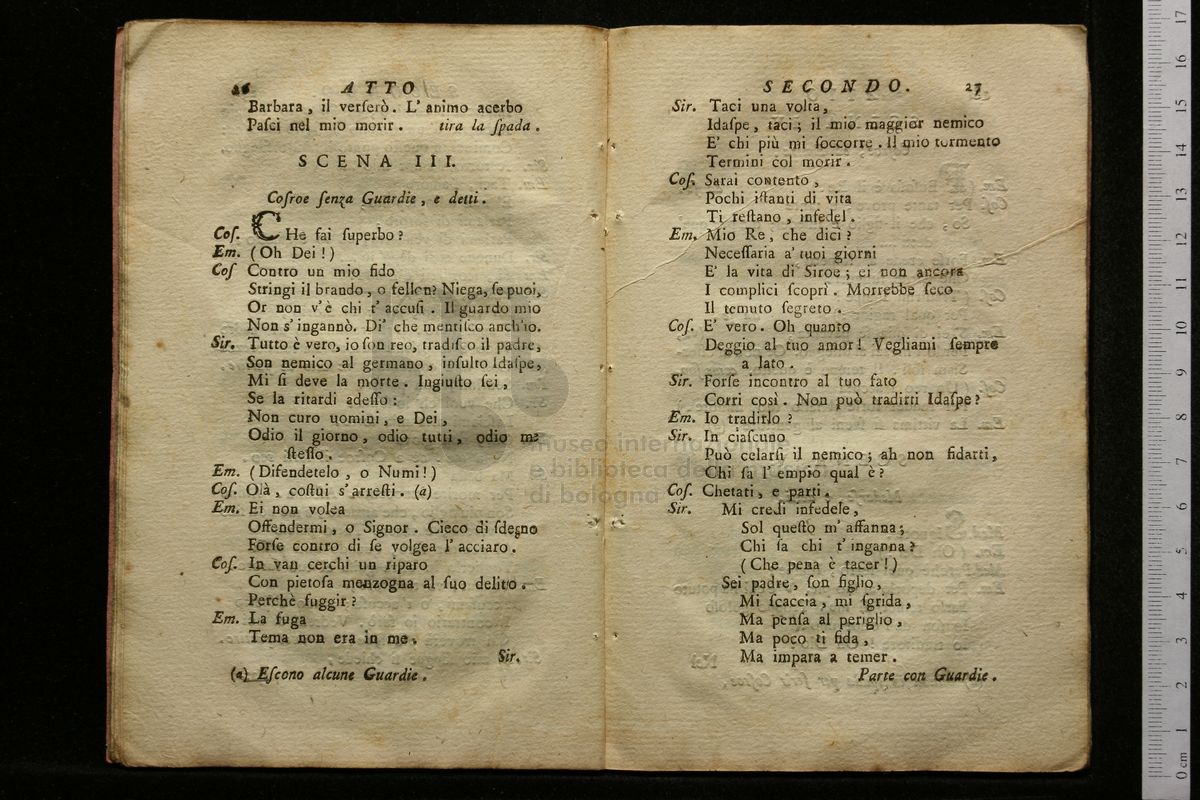 26 ATTO
Barbara, il verſerò. L' animo acerbo
Paſci nel mio morir. tira la ſpada.
SCENA III.
Coſroe ſenza Guardie, e detti.
Coſ. CHe fai ſuperbo?
Em. (Oh Dei!)
Coſ Contro un mio fido
Stringi il brando, o fellon? Niega, ſe puoi,
Or non v'è chi t' accuſi. Il guardo mio
Non s' ingannò. Di' che mentiſco anch'io.
Sir. Tutto è vero, io ſon reo, tradiſco il padre,
Son nemico al germano, inſulto Idaſpe,
Mi ſi deve la morte. Ingiuſto ſei,
Se la ritardi adeſſo:
Non curo uomini, e Dei,
Odio il giorno, odio tutti, odio me
ſteſſo.
Em. (Difendetelo, o Numi!)
Coſ. Olà, coſtui s' arreſti. (a)
Em. Ei non volea
Offendermi, o Signor. Cieco di ſdegno
Forſe contro di ſe volgea l' acciaro.
Coſ. In van cerchi un riparo
Con pietoſa menzogna al ſuo delitto.
Perchè fuggir?
Em. La fuga
Tema non era in me.
Sir.
(a) Eſcono alcune Guardie.
SECONDO. 27
Sir. Taci una volta,
Idaſpe, taci; il mio maggior nemico
E' chi più mi ſoccorre. Il mio tormento
Termini col morir.
Coſ. Sarai contento,
Pochi iſtanti di vita
Ti reſtano, infedel.
Em. Mio Re, che dici?
Neceſſaria a' tuoi giorni
E' la vita di Siroe; ei non ancora
I complici ſcoprì. Morrebbe ſeco
Il temuto ſegreto.
Coſ. E' vero. Oh quanto
Deggio al tuo amor! Vegliami ſempre
a lato.
Sir. Forſe incontro al tuo fato
Corri così. Non può tradirti Idaſpe?
Em. Io tradirlo?
Sir. In ciaſcuno
Può celarſi il nemico; ah non fidarti,
Chi ſa l' empio qual è?
Coſ. Chetati, e parti.
Sir. Mi credi infedele,
Sol queſto m' affanna;
Chi ſa chi t' inganna?
(Che pena è tacer!)
Sei padre, ſon figlio,
Mi ſcaccia, mi ſgrida,
Ma penſa al periglio,
Ma poco ti fida,
Ma impara a temer.
Parte con Guardie.
museo internazionale
e biblioteca della musica
di bologna
0 cm 1 2 3 4 5 6 7 8 9 10 11 12 13 14 15 16 17